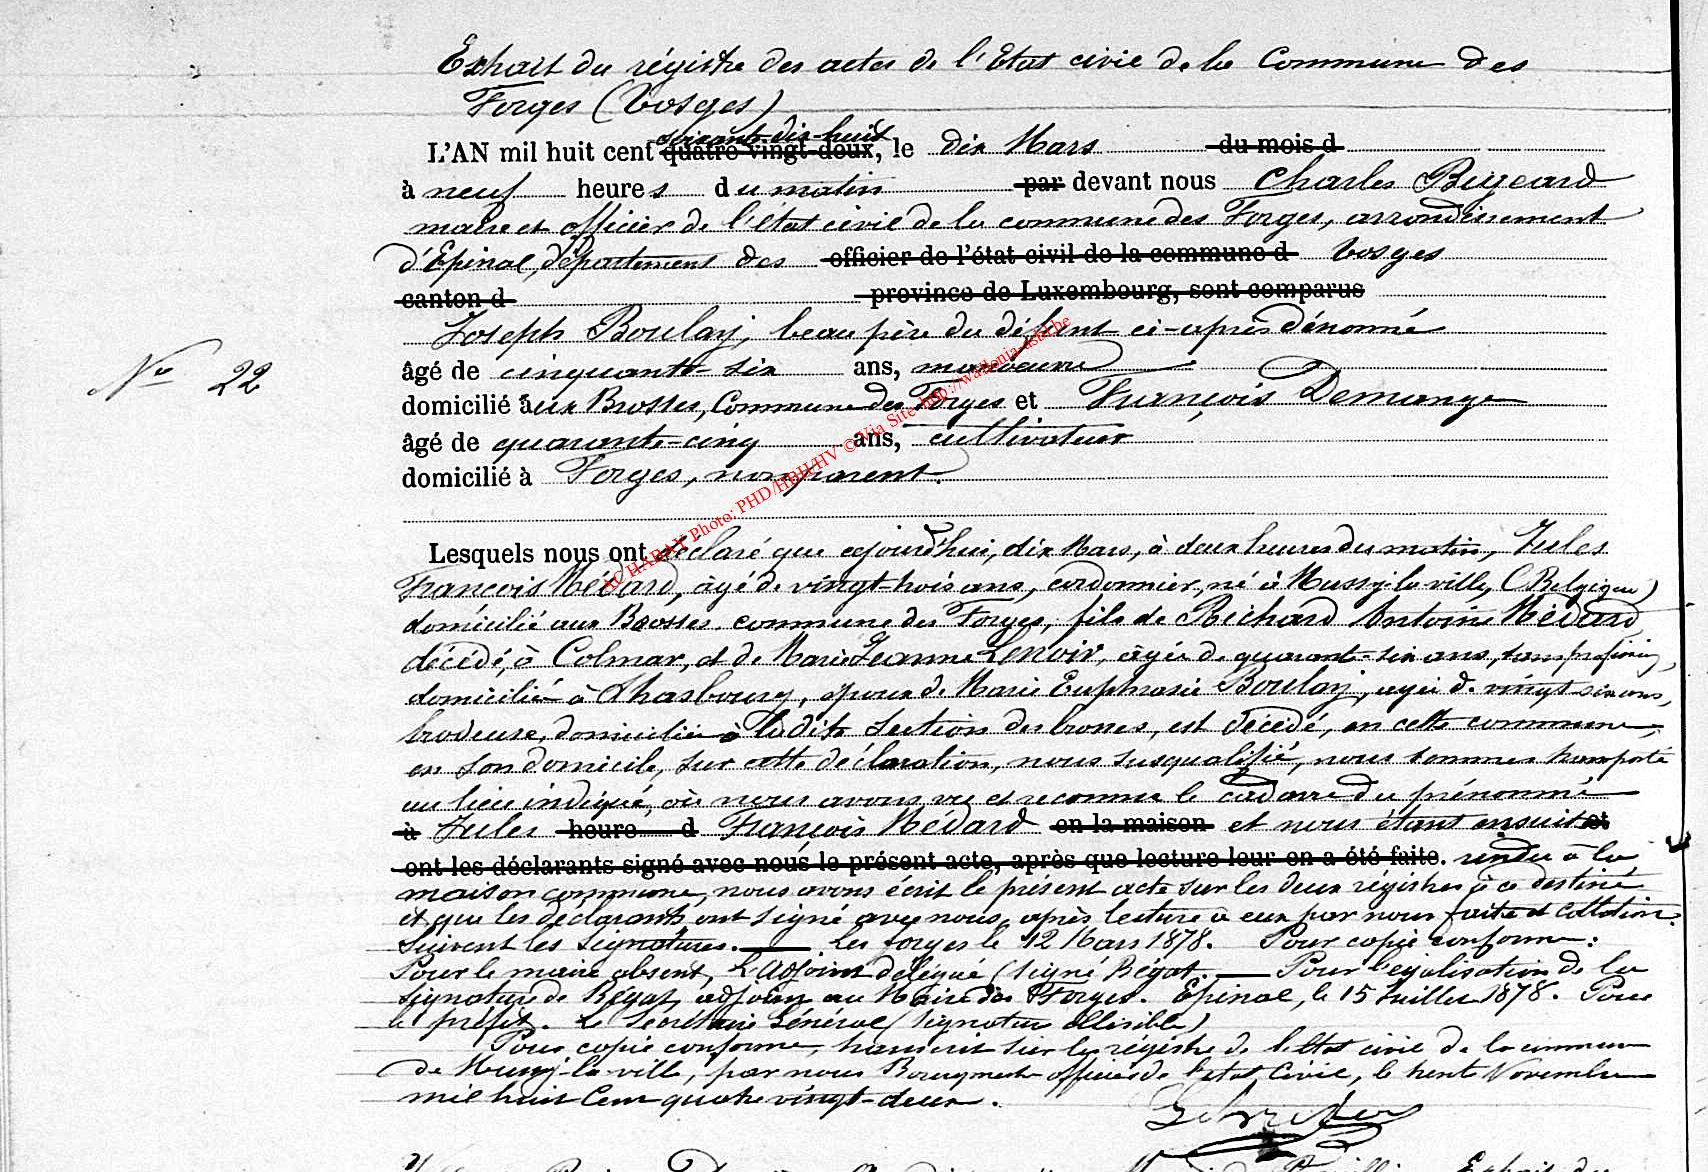 Extrait du régistre des actes de l'Etat civil de la Commune des
Forges (Vosges)
L'AN mil huit cent soixante-dix-huit quatre vingt-deux, le dix Mars du mois d
à neuf heures du matin par devant nous Charles Bigeard
maire et officier de l'état civil de la commune des Forges, arrondissement
d'Epinal, département des officier de l'état civil de la commune d Vosges
canton d province de Luxembourg, sont comparus
Joseph Boulay, beau père du défunt ci-après dénommé
N° 22
âgé de cinquante-six ans, manoeuvre
domicilié aux Brosses, Commune des Forges et François Demange
âgé de quarante-cinq ans, cultivateur
domicilié à Forges, non parent.
Lesquels nous ont déclaré que cejourd'hui, dix Mars, à deux heures du matin, Jules
François Médard, âgé de vingt-trois ans, cordonnier, né à Mussy-la-ville, (Belgique)
domicilié aux Brosses, commune des Forges, fils de Richard Antoine Médard
décédé, à Colmar, et de Marie Jeanne Lenoir, âgée de quarante-six ans, sans profession,
domiciliée à Strasbourg, époux de Marie Euphrasie Boulay, agée de vingt-six ans,
brodeuse, domiciliée à la dite section des brosses, est décédé, en cette commune,
en son domicile, sur cette déclaration, nous susqualifié, nous sommes transporté
au lieu indiqué, où nous avons vu et reconnu le cadavre du prénommé
à Jules heure d François Médard en la maison et nous étant ensuite et
ont les déclarants signé avec nous le présent acte, après que lecture leur en a été faite. rendu à la
maison commune, nous avons écrit le présent acte sur les deux régistres à ce destiné
et que les déclarants ont signé avec nous, après lecture à eux par nous faite et collation.
Suivent les signatures. — Les forges le 12 Mars 1878. Pour copie conforme:
Pour le maire absent, L'adjoint délégué (signé Bégat. — Pour légalisation de la
signature de Bégat, adjoint au Maire des Forges. Epinal, le 15 Juillet 1878. Pour
le préfet. Le Secrétaire Général (signature illisible)
Pour copie conforme, transcrit sur le régistre de l'etat civil de la commune
de Mussy-la-ville, par nous Bourgmestre officier de l'etat civil, le trente Novembre
mil huit Cent quatre vingt-deux.
ACHABAY Photo: PHD/HBH/HV © Via Site http://wallonia-asbl.be